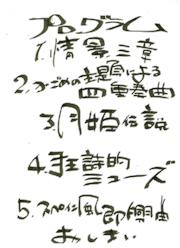 プログラム
1.情景三章
2.かごめの主題による
四重奏曲
3.月姫伝説
4.狂詩的
ミューズ
5.スペイン風即興曲
おしまい